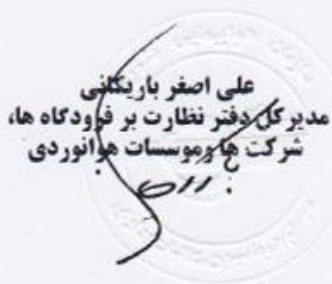 علی اصغر باریکانی
مدیرکل دفتر نظارت بر فرودگاه ها،
شرکت ها وموسسات هوانوردی